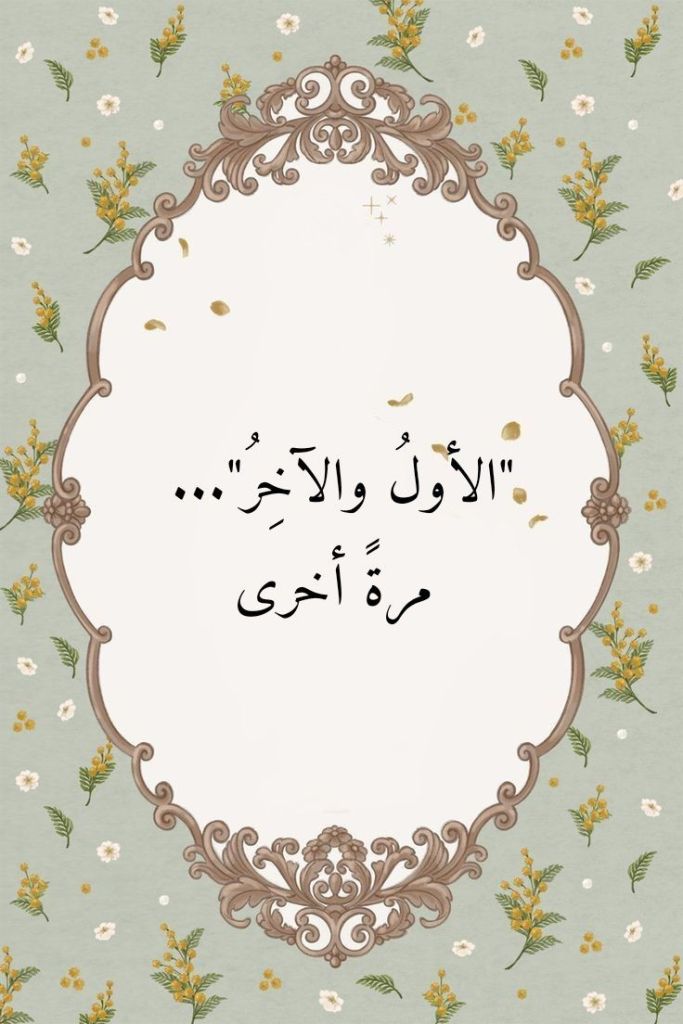 "الأولُ والآخِرُ"...
مرةً أخرى